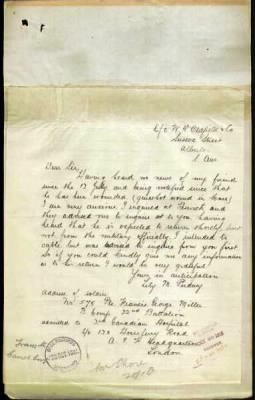 c/o W. H. & Co
Street
S. Aus
Dear Sir,
Having heard no news of my friend
since the 12 July and being notified since that
he has been wounded (gunshot wound in knee)
I am very anxious I inquired at and
they advised me to inquire at you having
heard that he is expected to return shortly but
not from the military officially. I intended to
cable but was advised to inquire from you first
So if you could kindly give me any information
as to his return I would be very grateful
Yours in anticipation
Lily M.
address of soldier
No 578 Pte. Francis George Miller
B Comp 32nd Battalion
3rd Canadian Hospital
c/o 130 Horseferry Road
A. I. F. Headquarters
London